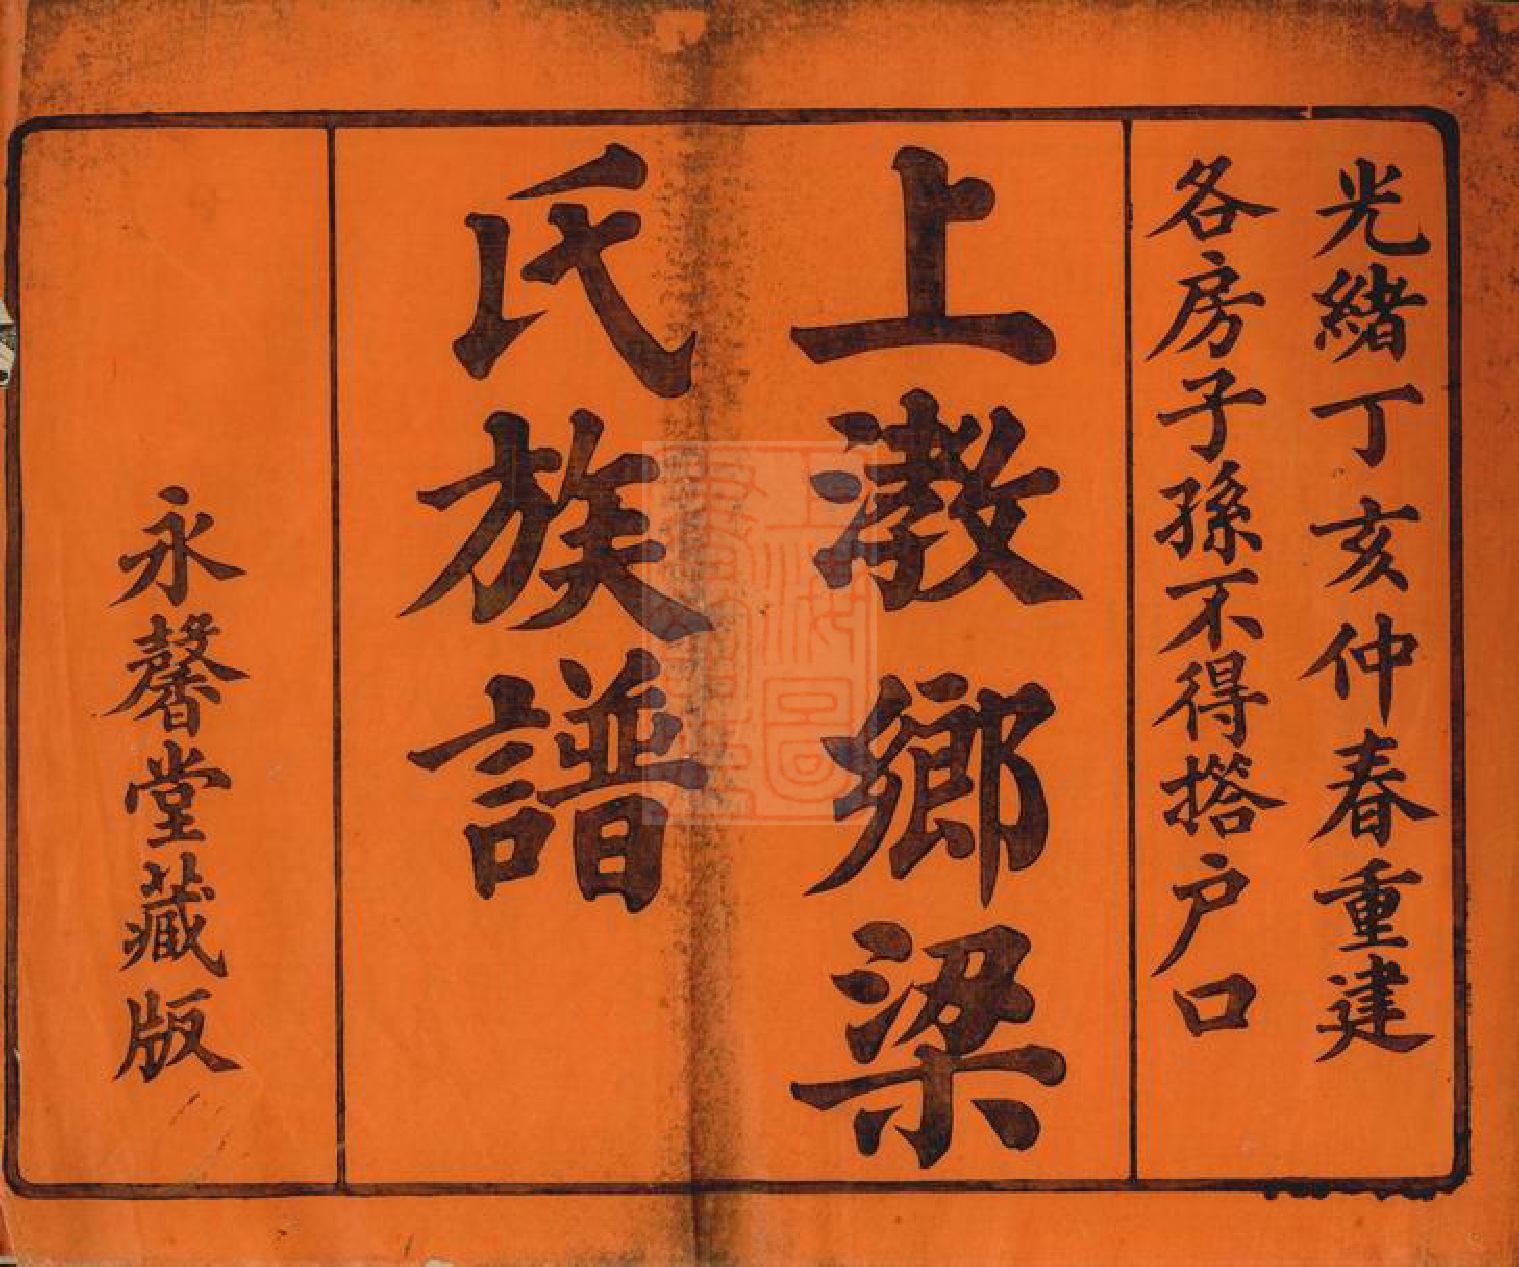 光緒丁亥仲春重建
各房子孫不得搭户口
上漖鄉梁
氏族譜
永馨堂藏版